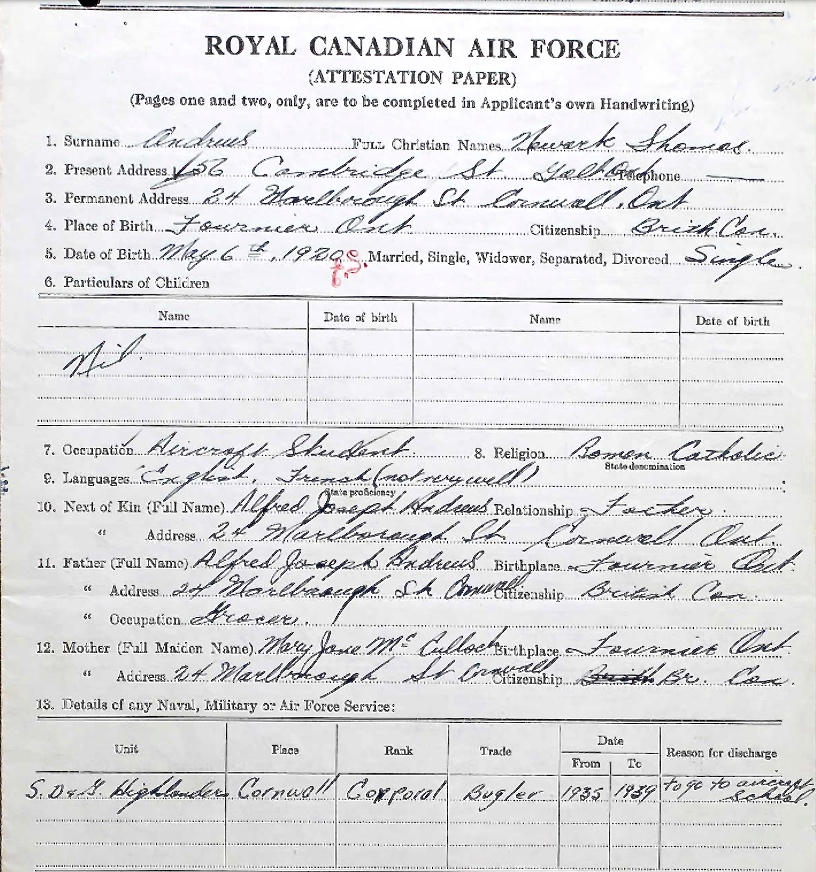 ROYAL CANADIAN AIR FORCE
(ATTESTATION PAPER)
(Pages one and two, only, are to be completed in Applicant's own Handwriting)
1. Surname Andrews FULL Christian Names Newark Thomas.
2. Present Address 156 Cambridge St. Galt Ont Telephone —
3. Permanent Address 24 Marlborough St Cornwall, Ont
4. Place of Birth Fournier Ont Citizenship Brith Can.
5. Date of Birth May 6th, 1920 Married, Single, Widower, Separated, Divorced Single.
6. Particulars of Children
Name Date of birth Name Date of birth
Nil.
7. Occupation Aircraft Student 8. Religion Romen Catholic
State denomination
9. Languages English, French (not very well)
State proficiency
10. Next of Kin (Full Name) Alfred Joseph Andrews Relationship Father.
" Address 24 Marlborough St Cornwall Ont.
11. Father (Full Name) Alfred Joseph Andrews Birthplace Fournier Ont.
" Address 24 Marlborough St. Cornwall Citizenship British Can.
" Occupation Grocer.
12. Mother (Full Maiden Name) Mary Jane McCulloch Birthplace Fournier Ont.
" Address 24 Marlborough St Cornwall Citizenship Br. Can.
13. Details of any Naval, Military or Air Force Service:
Unit Place Rank Trade Date Reason for discharge
From To
S. D & G. Highlanders Cornwall Corporal Bugler 1935 1939 to go to aircraft
school.